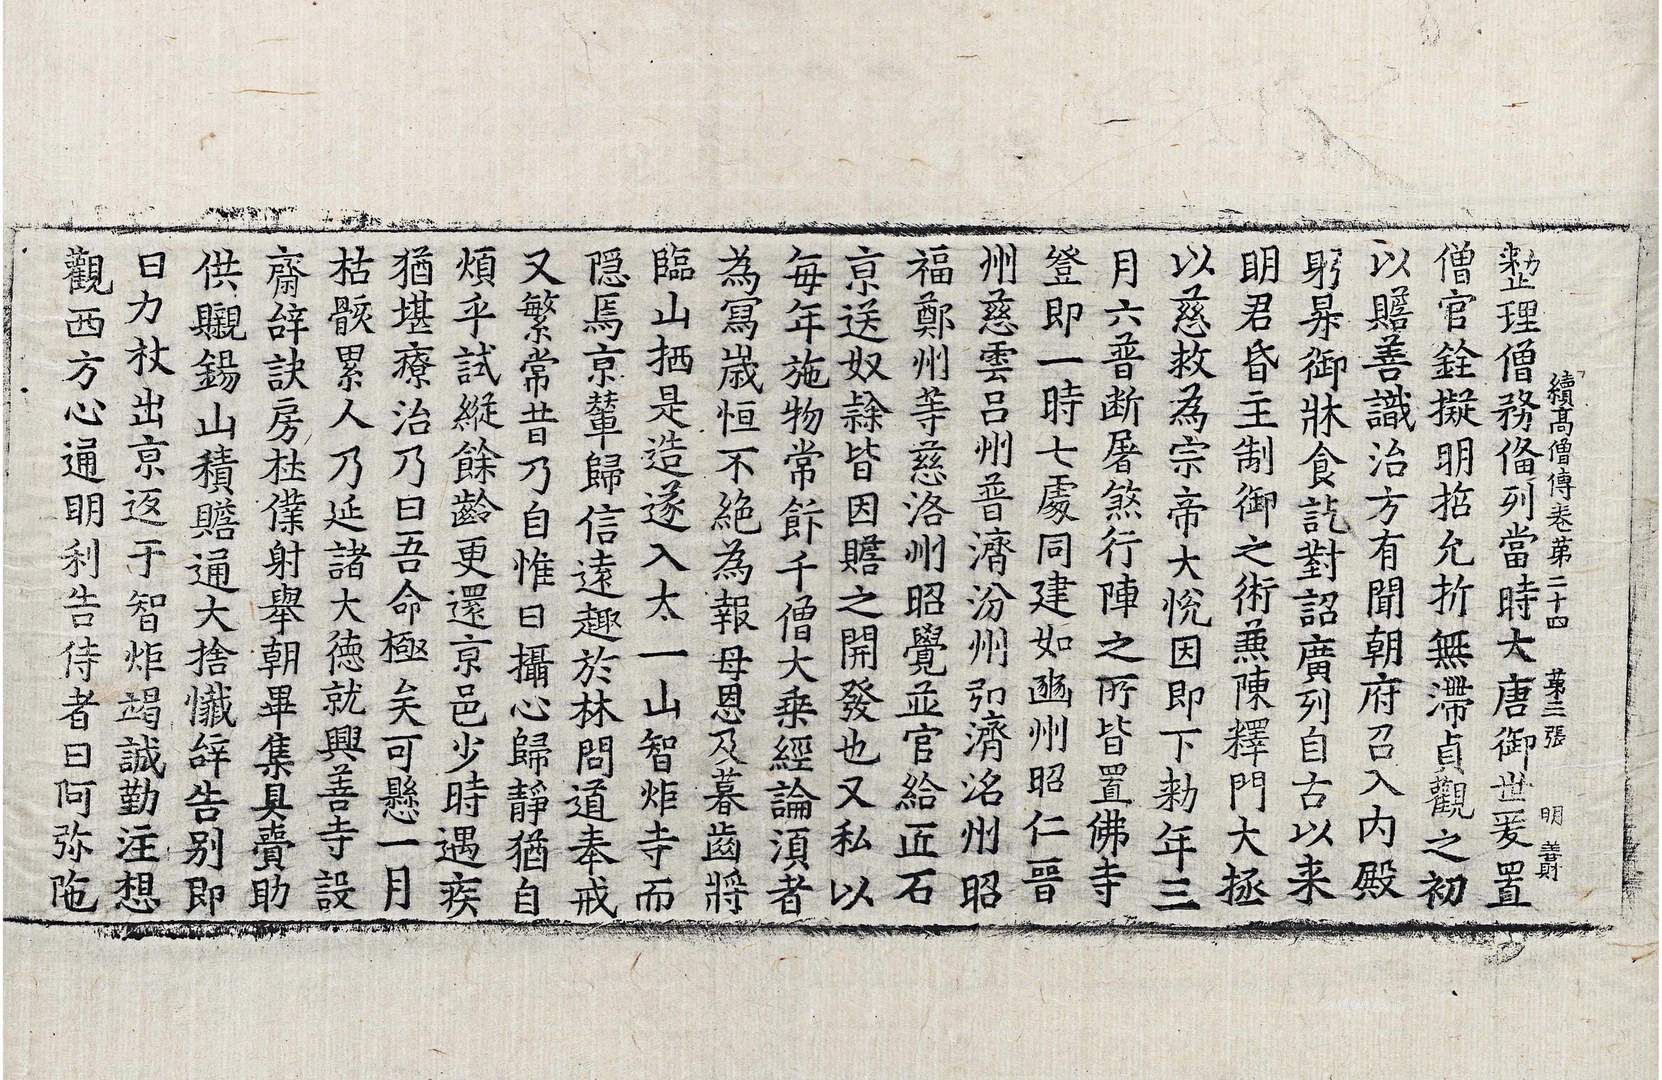 續高僧傳卷第二十四　第三張　明　善財
整理僧務備列當時大唐御世爰置
僧官銓擬明哲允折無滯貞觀之初
以贍善識治方有聞朝府召入內殿
躬昇御牀食訖對詔廣列自古以来
明君昏主制御之術兼陳釋門大拯
以慈救為宗帝大悅因即下勑年三
月六普断屠煞行陣之所皆置佛寺
登即一時七處同建如豳州昭仁晉
州慈雲呂州普濟汾州弘濟洺州昭
福鄭州等慈洛州昭覺並官給匠石
京送奴𨽻皆因贍之開發也又私以
每年施物常飯千僧大乗經論湏者
為寫歳恒不絶為報母恩及暮齒將
臨山栖是造遂入太一山智炬寺而
隠焉京輦歸信遠趣於林問道奉戒
又繁常昔乃自惟曰攝心歸靜猶自
煩乎試縱餘齡更還京邑少時遇疾
猶堪療治乃曰吾命極矣可懸一月
枯骸累人乃延諸大德就興善寺設
齋辝訣房杜僕射舉朝畢集具賷助
供儭錫山積贍通大捨懴辝告别即
日力杖出京返于智炬竭誠勤注想
觀西方心通明利告侍者曰阿弥陁